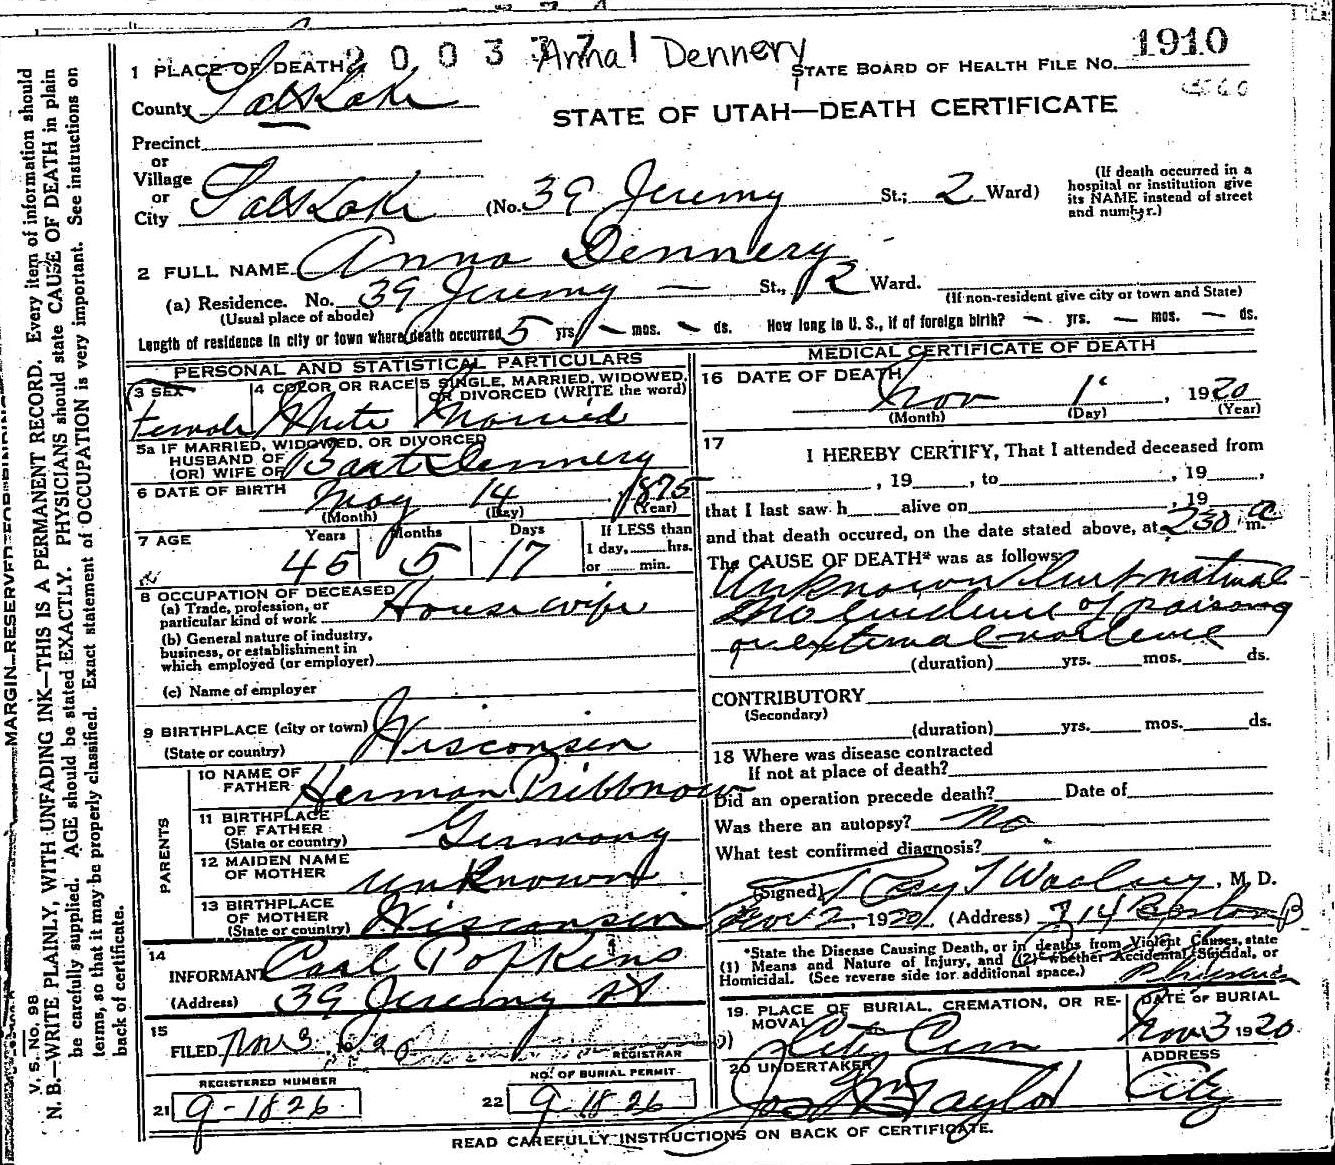 2 0 0 3 3 7 Anna Dennery
1 PLACE OF DEATH
STATE BOARD OF HEALTH FILE NO. 1910
County Salt Lake
STATE OF UTAH—DEATH CERTIFICATE
Precinct
or
Village
or
City Salt Lake (No. 39 Jeremy St.; 2 Ward)
(If death occurred in a
hospital or institution give
its NAME instead of street
and number.)
2 FULL NAME Anna Dennery
(a) Residence. No. 39 Jeremy — St., 2 Ward.
(Usual place of abode)
(If non-resident give city or town and State)
Length of residence in city or town where death occurred 5 yrs. – mos. – ds. How long in U. S., if of foreign birth? – yrs. – mos. – ds.
PERSONAL AND STATISTICAL PARTICULARS
3 SEX
Female
4 COLOR OR RACE
White
5 SINGLE, MARRIED, WIDOWED,
OR DIVORCED (WRITE the word)
Married
5a IF MARRIED, WIDOWED, OR DIVORCED
HUSBAND OF
(OR) WIFE OF Bart Dennery
6 DATE OF BIRTH May 14 1875
(Month) (Day) (Year)
7 AGE
Years Months Days
45 5 17
If LESS than
1 day, hrs.
or min.
8 OCCUPATION OF DECEASED
(a) Trade, profession, or
particular kind of work Housewife
(b) General nature of industry,
business, or establishment in
which employed (or employer)
(c) Name of employer
9 BIRTHPLACE (city or town)
(State or country) Wisconsin
PARENTS
10 NAME OF
FATHER Herman Pribbnow
11 BIRTHPLACE
OF FATHER
(State or country) Germany
12 MAIDEN NAME
OF MOTHER unknown
13 BIRTHPLACE
OF MOTHER
(State or country) Wisconsin
14
INFORMANT Carl Popkens
(Address) 39 Jeremy St
15
FILED Nov 3 1920
REGISTRAR
REGISTERED NUMBER
21 9-1826
NO. OF BURIAL PERMIT
22 9-1826
MEDICAL CERTIFICATE OF DEATH
16 DATE OF DEATH
Nov 1 , 1920
(Month) (Day) (Year)
17
I HEREBY CERTIFY, That I attended deceased from
, 19 , to , 19 ,
that I last saw h alive on , 19
and that death occured, on the date stated above, at 230 a m.
The CAUSE OF DEATH* was as follows:
Unknown but natural
No evidence of poisong
or external violence
(duration) yrs. mos. ds.
CONTRIBUTORY
(Secondary)
(duration) yrs. mos. ds.
18 Where was disease contracted
If not at place of death?
Did an operation precede death? Date of
Was there an autopsy? No
What test confirmed diagnosis?
(Signed) Ray T Woolsey , M D.
Nov 2, 1920 (Address) 714 Boston B
*State the Disease Causing Death, or in deaths from Violent Causes, state
(1) Means and Nature of Injury, and (2) whether Accidental, Suicidal, or
Homicidal. (See reverse side for additional space.)
19. PLACE OF BURIAL, CREMATION, OR RE-
MOVAL City Cem
DATE OF BURIAL
Nov 3 1920
20 UNDERTAKER
Jos Wm Taylor
ADDRESS
City
READ CAREFULLY INSTRUCTIONS ON BACK OF CERTIFICATE.
MARGIN RESERVED FOR BINDING
V. S. No. 98
N. B.—WRITE PLAINLY, WITH UNFADING INK—THIS IS A PERMANENT RECORD. Every item of information should
be carefully supplied. AGE should be stated EXACTLY. PHYSICIANS should state CAUSE OF DEATH in plain
terms, so that it may be properly classified. Exact statement of OCCUPATION is very important. See instructions on
back of certificate.